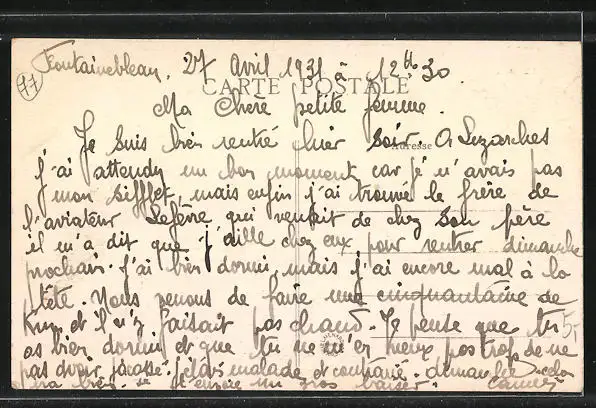 Fontainebleau. 27 Avril 1931 à 12h30.
77
CARTE POSTALE
Ma Chère petite femme.
Je suis bien rentré hier soir. A Luzarches
Adresse
j'ai attendu un bon moment car je n'avais pas
mon sifflet, mais enfin j'ai trouvé le frère de
l'aviateur Lefèvre qui venait de chez son père
il m'a dit que j'aille chez eux pour rentrer dimanche
prochain. j'ai bien dormi, mais j'ai encore mal à la
tête. Nous venons de faire une cinquantaine de
Km, et il n'y faisait pas chaud. Je pense que tu
5,-
as bien dormi et que tu ne m'en veux pas trop de ne
pas malade et contrarié. dimanche
bien. encore un gros baiser.